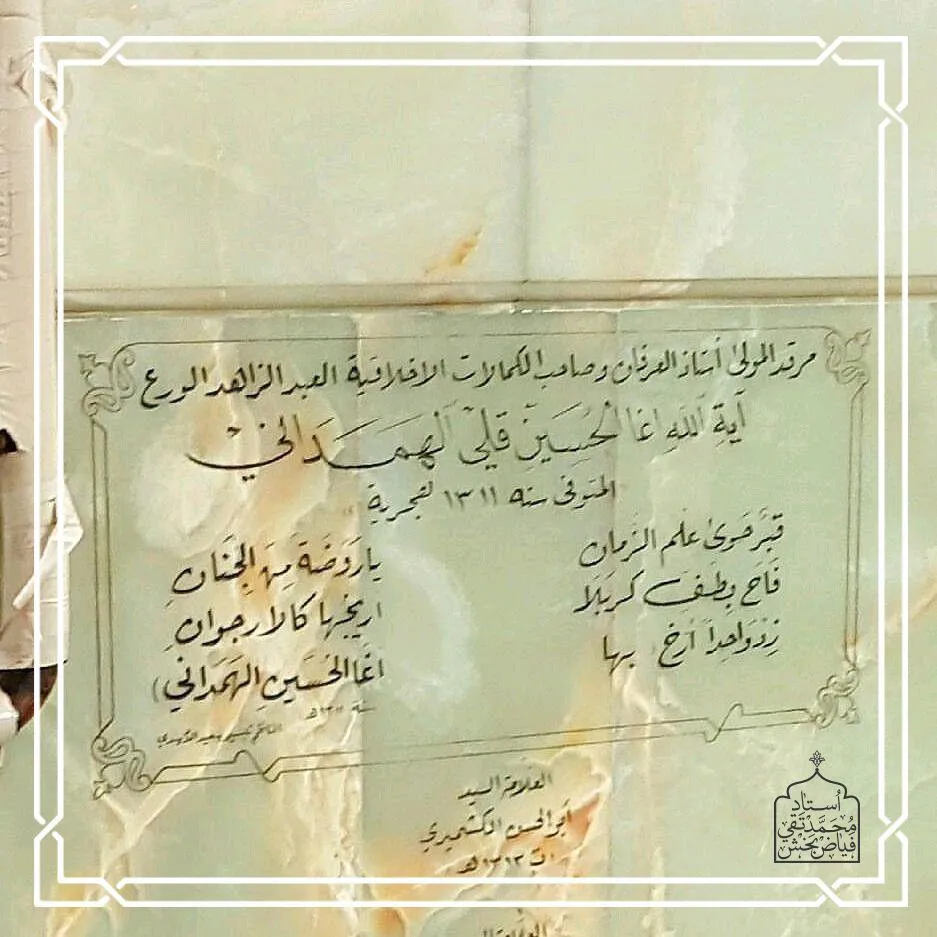 مرقد المولى أستاذ العرفان وصاحب الكمالات الاخلاقية العبد الزاهد الورع
آيةِ اللهِ اغا الحُسَينِ قلي الهمَدَاني
المتوفى سنه ١٣١١ لهجرية
قبرٌ حَوى علم الزمان يا رَوضَة مِنَ الجِنانِ
فَاحَ بِطَفِ كربَلَا اريجها كالارجوانِ
زِدْ وَاحِداً أرخ بها (اغا الحُسَينِ الهَمَداني)
سنه ١٣١١هـ
العلامة السيد
أبو الحسن الكشميري
ت ١٣١٣هـ
العلامة السيد
أُستاد
مُحَمَّدتَقی
فَیّاض‌بَخش